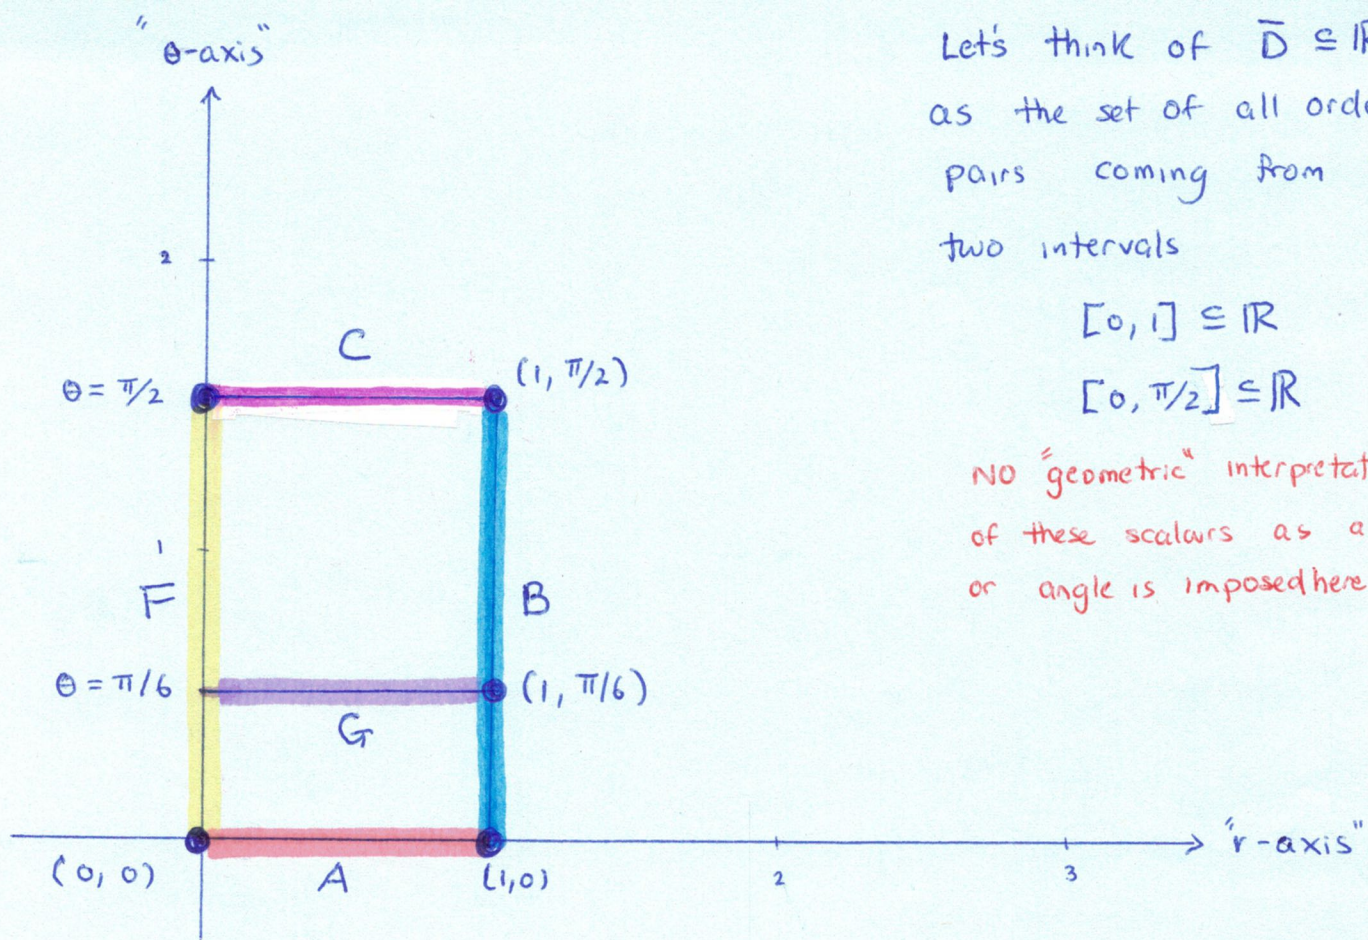 "θ-axis"
2
C
θ = π/2
(1, π/2)
1
F
B
θ = π/6
(1, π/6)
G
(0, 0)
A
(1,0)
2
3
"r-axis"
Let's think of D̄ ⊆
as the set of all
pairs coming from
two intervals
[0, 1] ⊆ ℝ
[0, π/2] ⊆ ℝ
NO "geometric"
of these scalars as a
or angle is imposed here